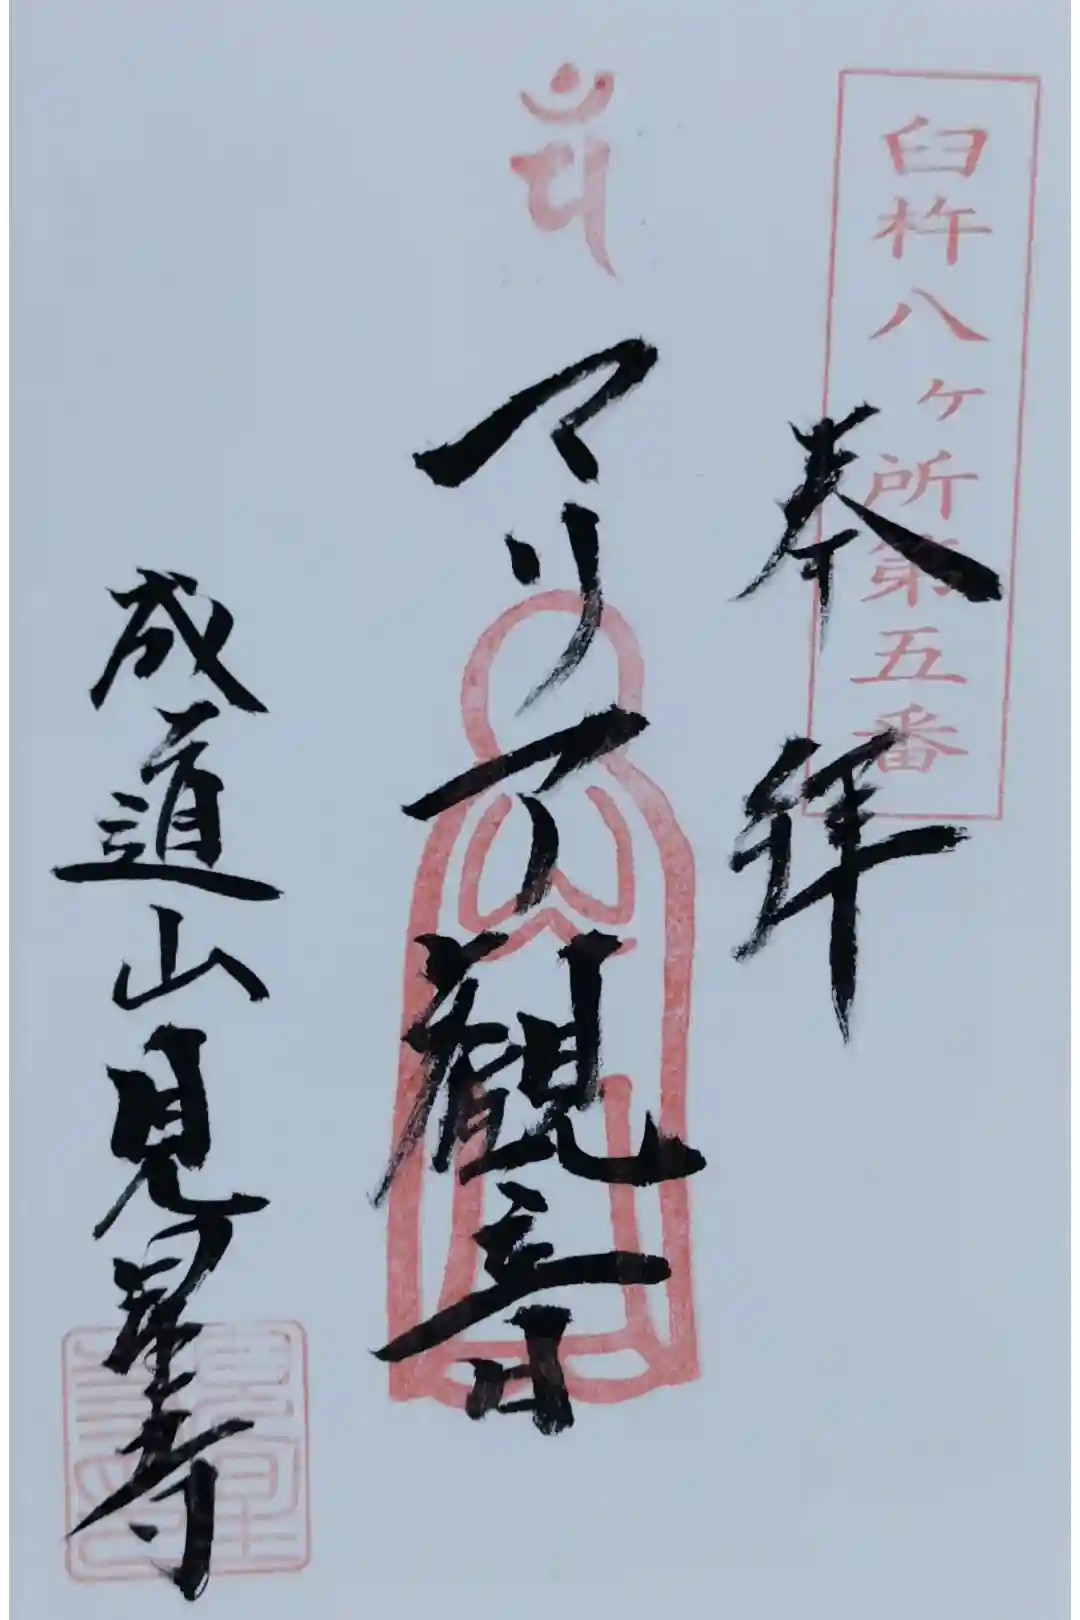 臼杵八ヶ所第五番
奉拝
マリア観音
成道山見星寺